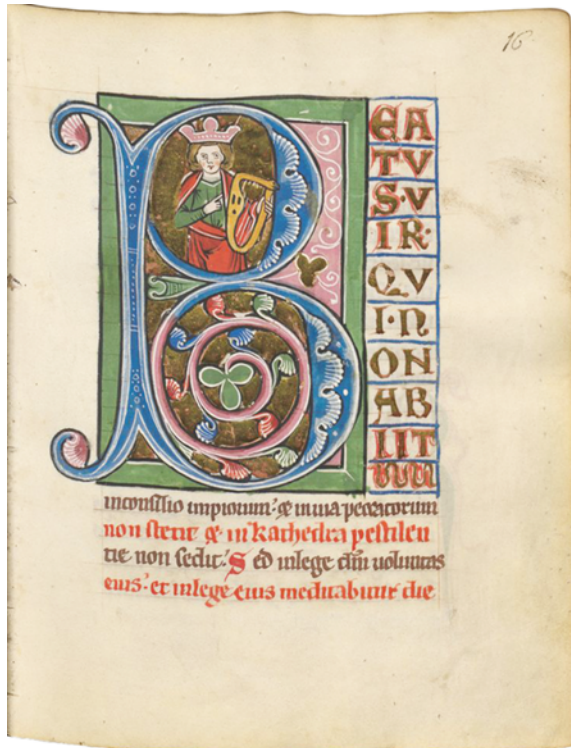 16
B
EA
TV
S·V
IR·
QV
I·N
ON
AB
IIT
inconsilio impiorum.' & inuia peccatorum
non stetit & in kathedra pestilen
tie non sedit.' Sed inlege dñi uoluntas
eius.' et inlege eius meditabitur die